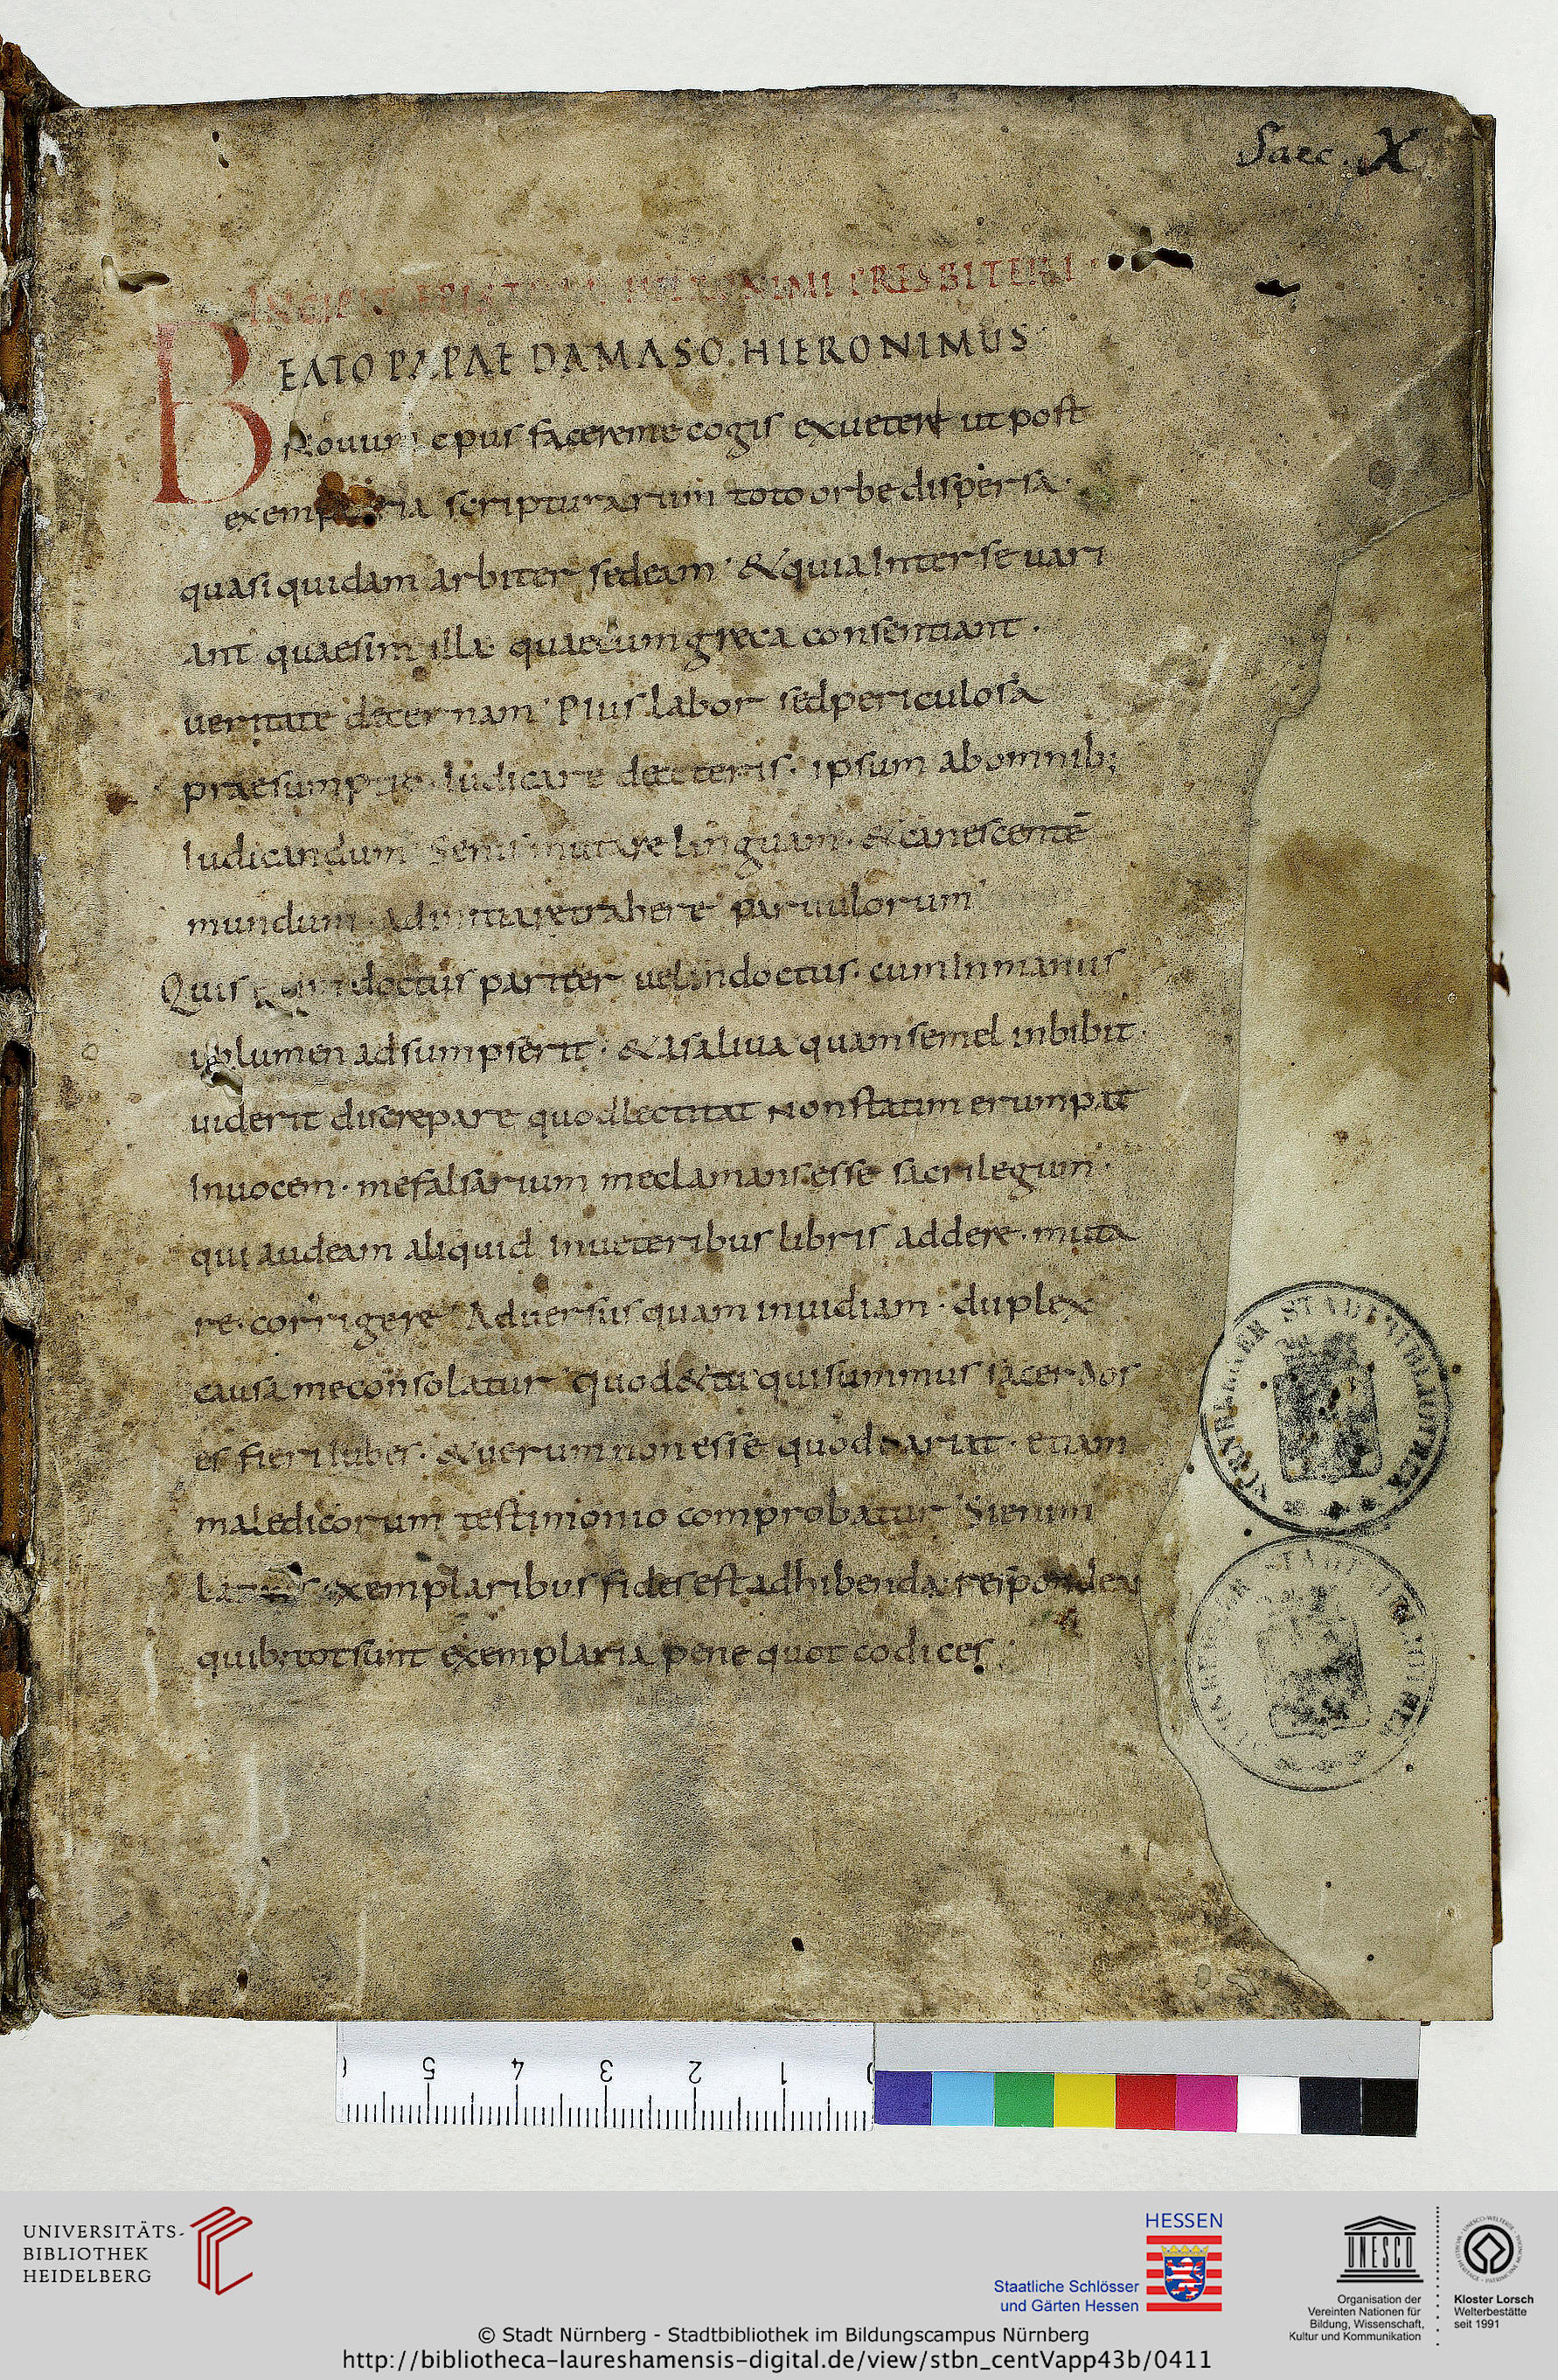 Saec. X
INCIPIT EPISTOLA HIERONIMI PRESBITERI
BEATO PAPAE DAMASO HIERONIMUS
Nouum opus facere me cogis exuetere ut post
exemplaria scripturarum toto orbe dispersa·
quasi quidam arbiter sedeam· & quia Inter se uari
ant quae sim illa quae cum greca consentiant·
ueritate decernam· Pius labor sed periculosa
praesumptio· Iudicare de ceteris· ipsum ab omnib;
Iudicandum· Senis mutare linguam· & canescentē
mundum· ad initia retrahere paruulorum·
Quis doctus pariter uel indoctus· cum In manus
uolumen adsumpserit· & a saliua quam semel inbibit·
uiderit discrepare quod lectitat Non statim erumpat
In uocem· me falsarium me clamans esse sacrilegum·
qui audeam aliquid In ueteribus libris addere· muta
re· corrigere· Aduersus quam inuidiam· duplex
causa me consolatur· quod & tu qui summus sacerdos
es fieri Iubes· & uerum non esse quod uariat· etiam
maledicorum testimonio comprobatur· Si enim
latinis exemplaribus fides est adhibenda· respondeN
quib; tot sunt exemplaria pene quot codices·
NÜRNBERGER STADTBIBLIOTHEK
NÜRNBERGER STADTBIBLIOTHEK
5 4 3 2 1 0
UNIVERSITÄTS-
BIBLIOTHEK
HEIDELBERG
HESSEN
Staatliche Schlösser
und Gärten Hessen
UNESCO
Organisation der
Vereinten Nationen für
Bildung, Wissenschaft,
Kultur und Kommunikation
Kloster Lorsch
Welterbestätte
seit 1991
© Stadt Nürnberg - Stadtbibliothek im Bildungscampus Nürnberg
http://bibliotheca-laureshamensis-digital.de/view/stbn_centVapp43b/0411